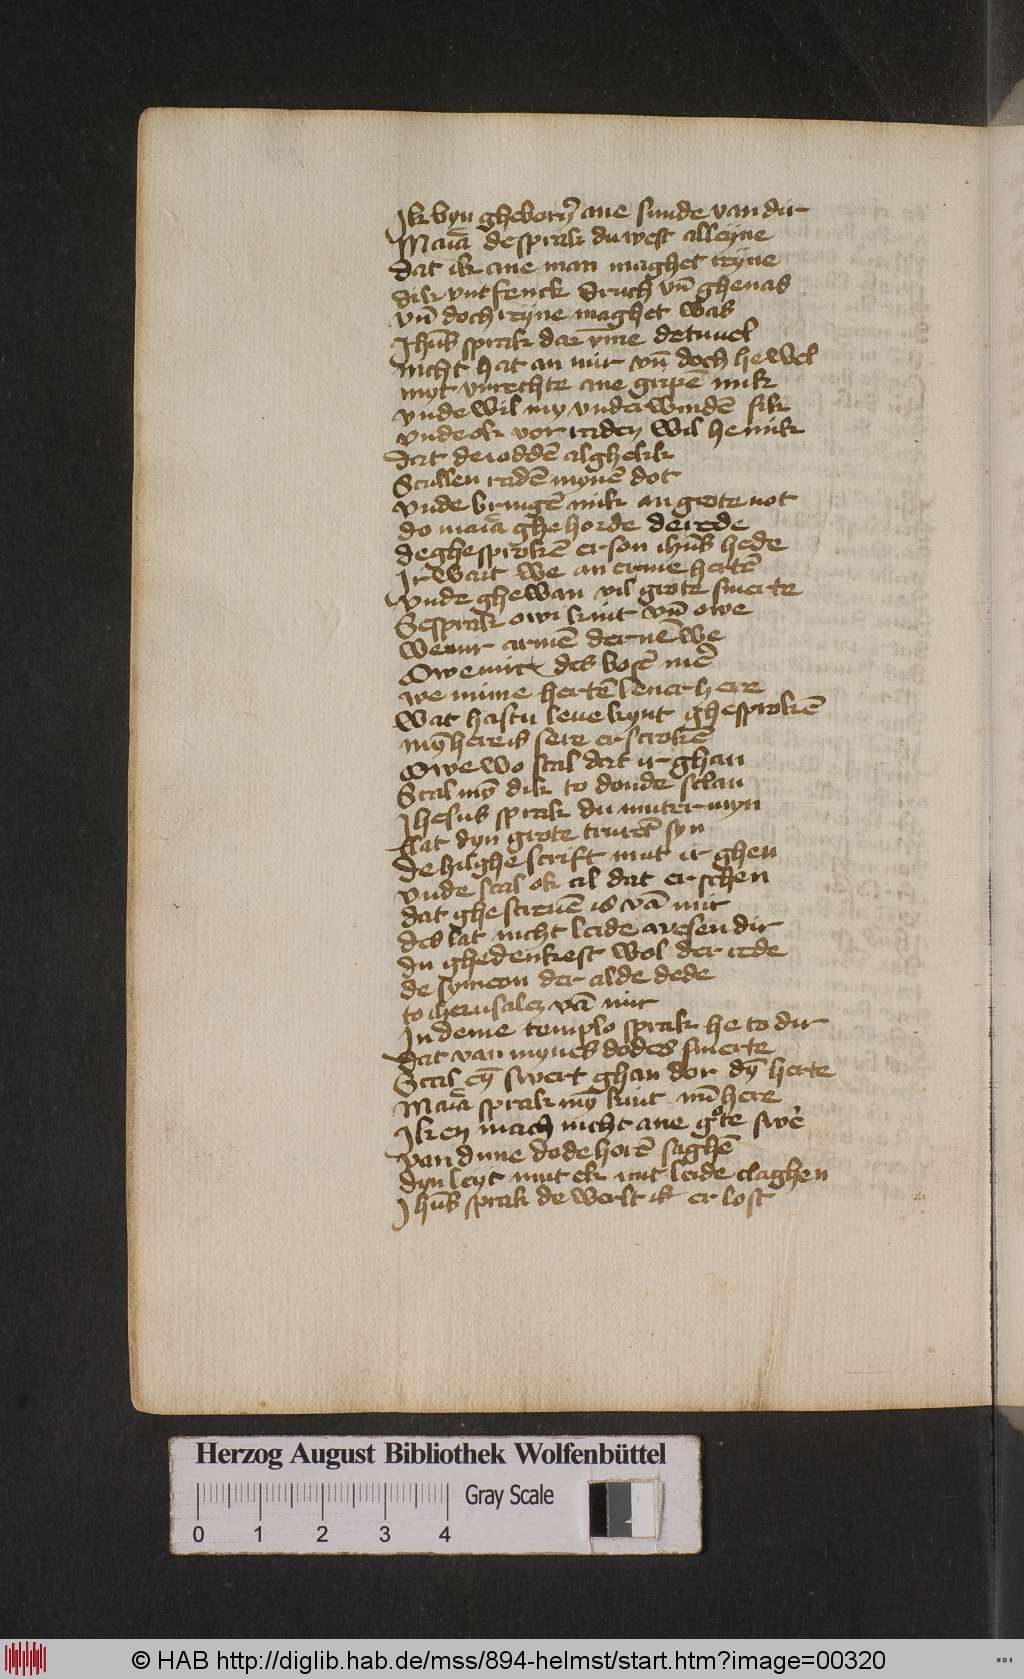 Ik byn gheborn̄ ane sunde van dir
Maria de sprak du west alleyne
dat ik ane man maghet reyne
dik vntfenck druch vn̄ ghenas
vn̄ doch reyne maghet was
Ihūs sprak dar vm̄e de tuuel
nicht hat an mir vn̄ doch he wel
myt vnrechte ane gripē mik
vnde wil my vnder windē sik
vnde ok vor raden wil he mik
dat de ioddē al ghelik
Scullen radē mynē dot
vnde bringē mik an grote not
do maria ghe horde de rede
de ghe sprokē er son ihūs hede
Ir wart we an erme hertē
vnde ghe wan vil grote smerte
Se sprak owi kint vn̄ owe
we mir armē der nē we
Owe mir des bosē mē
we mime hertē leuer here
wat hastu leue kynt ghe sprokē
myn̄ here is sere er scrokē
Owe wo scal dat ir ghan
Scal mē dik to donde sclan
Ihesus sprak du muter myn
lat dyn grote trurēt syn
de hilghe scrift mut ir ghen
vnde scal ok al dat er schen
dat ghe screuē is vā mir
des lat nicht leide wesen dir
du ghedenkest wol der rede
de symeon der alde dede
to iherusalem vā mir
In deme templo sprak he to dir
dat van mynes dodes smerte
Scal eyn̄ swert ghan dor dyn̄ herte
Maria sprak myn̄ kint mī here
Ik en mach nicht ane grote swer
van dime dode horē saghē
dyn leyt mut ek mit leide claghen
Ihūs sprak de werlt ik er lost
Herzog August Bibliothek Wolfenbüttel
Gray Scale
0 1 2 3 4
© HAB http://diglib.hab.de/mss/894-helmst/start.htm?image=00320